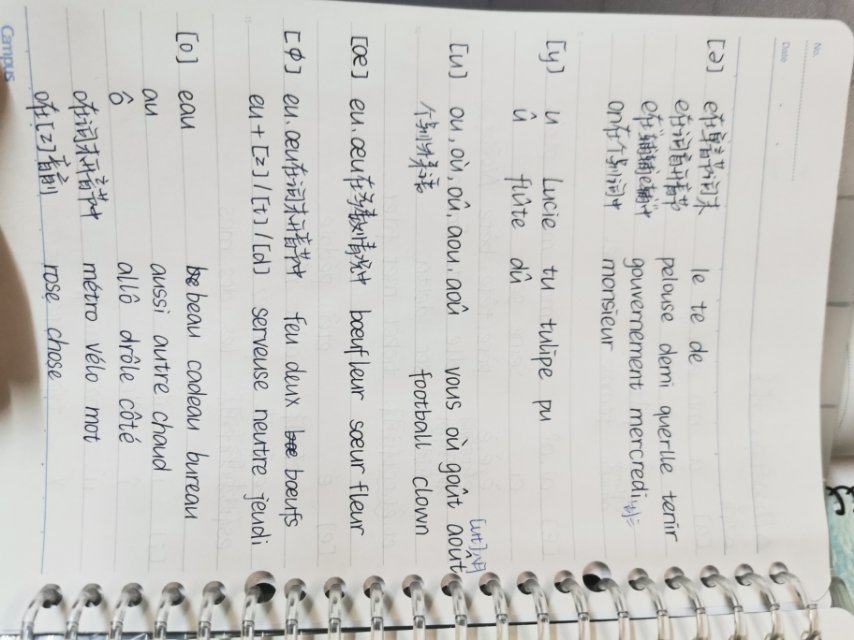 No.
Date
[ə] e在单音节词末 le te de
e在词首开音节 pelouse demi querlle tenir
e在"辅辅e辅"中 gouvernement mercredi
on在个别词中 monsieur
[y] u Lucie tu tulipe pu
û flûte dû
[u] ou, où, oû, aou, aoû vous où goût août [ut] 八月
个别外来语 football clown
[œ] eu. œu在多数情况中 bœuf leur sœur fleur
[ø] eu. œu在词末开音节中 feu deux bœufs
eu + [z] / [t] / [d] serveuse neutre jeudi
[o] eau beau cadeau bureau
au aussi autre chaud
ô allô drôle côté
o在词末开音节中 métro vélo mot
o在[z]音前 rose chose
Campus